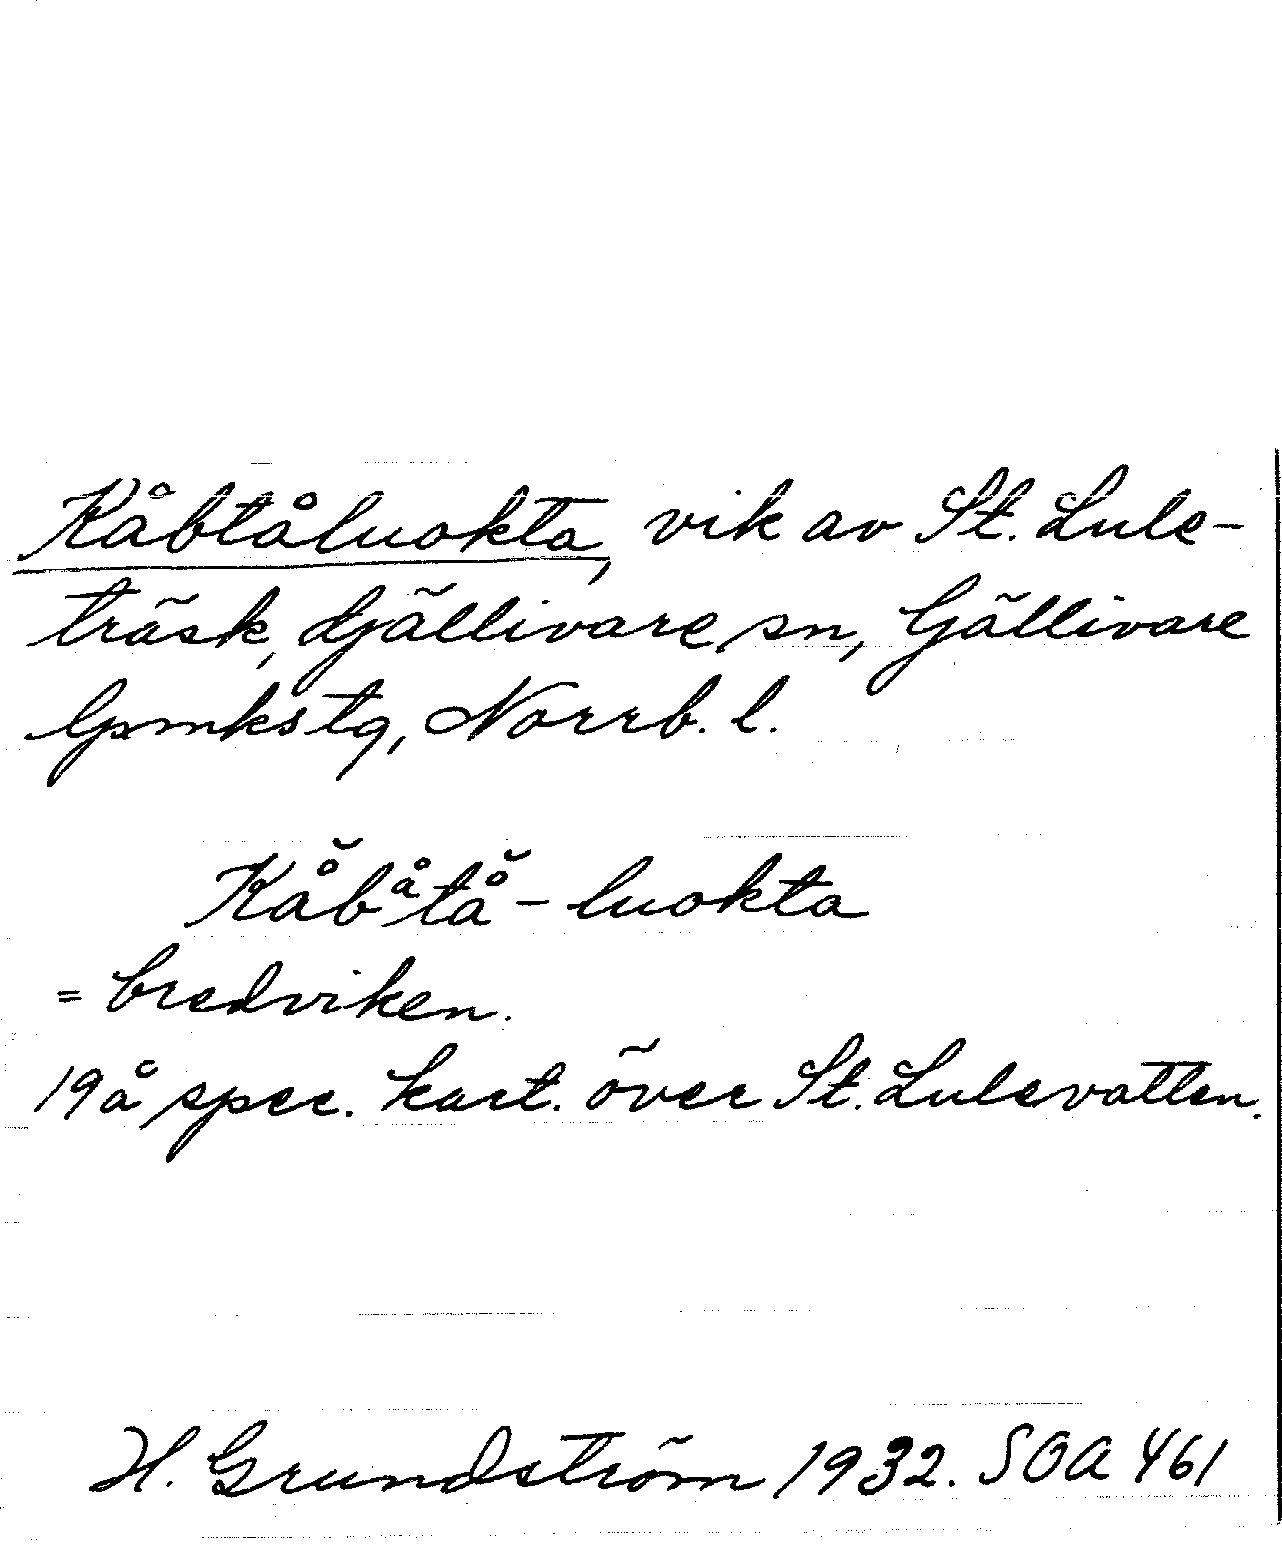 Kåbtåluokta, vik av St. Lule-
träsk, Gjällivare sn, Gällivare
lpmkstg, Norrb. l.
Kå̆båtå̆-luokta
= bredviken.
19 å spec. kart. över St. Lulevatten.
H. Grundström 1932. SOA 461